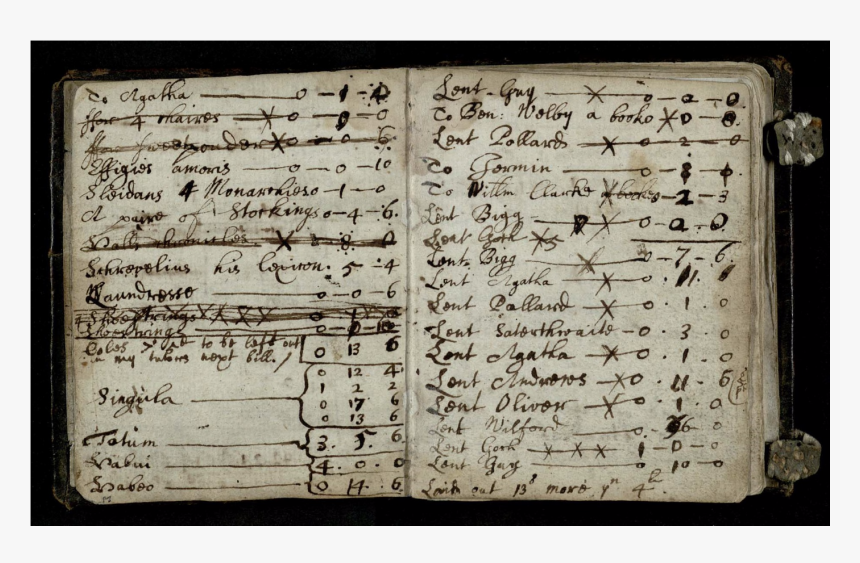 To Agatha — 0 - 1 - 4
ffor 4 chaires — X 0 - 9 - 0
ffor X 0 - 0 - 6
Effigies amoris — 0 - 0 - 10
Sleidans 4 Monarchies 0 - 1 - 0
A paire of Stockings 0 - 4 - 6.
X 8 0
Schrevelius his lexicon. 5 - 4
Laundresse — 0 - 0 - 6
Shoestrings X X X X 0
Shoestrings — 0
to be left out 0 13 6
in my tutors next bill.
0 12 4
Singula — 1 2 2
0 17 6
0 13 6
Totum — 3. 5. 6
Habui — 4. 0. 0
Habeo — 0 14. 6
Lent Guy — X — 0 - 2 - 0.
To Ben: Welby a booke X 0 - 8.
Lent Pollard — X — 0 - 2 - 0
To Germin — 0
To Willm Clarke X bookes - 2 - 3
Lent Bigg — X — 0 - 2 - 6
Lent Cock X
Lent Bigg — X — 0 - 7 - 6.
Lent Agatha — X — 0. 11. 0
Lent Pollard — X — 0. 1. 0
Lent Saterthwaite — 0. 3. 0
Lent Agatha — X — 0. 1. 0
Lent Andrewes — X 0. 11. 6
Lent Oliver — X — 0. 1. 0
Lent Wilford — 0 - 0
Lent Cock — X X X 1 - 0 - 0
Lent Guy — 0 10 - 0
out 13s more, yn. 4